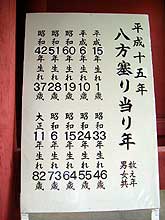 平成十五年
八方塞り当り年
数え年
男女共
平成15年生れ1歳
平成6年生れ10歳
昭和60年生れ19歳
昭和51年生れ28歳
昭和42年生れ37歳
昭和33年生れ46歳
昭和24年生れ55歳
昭和15年生れ64歳
昭和6年生れ73歳
大正11年生れ82歳